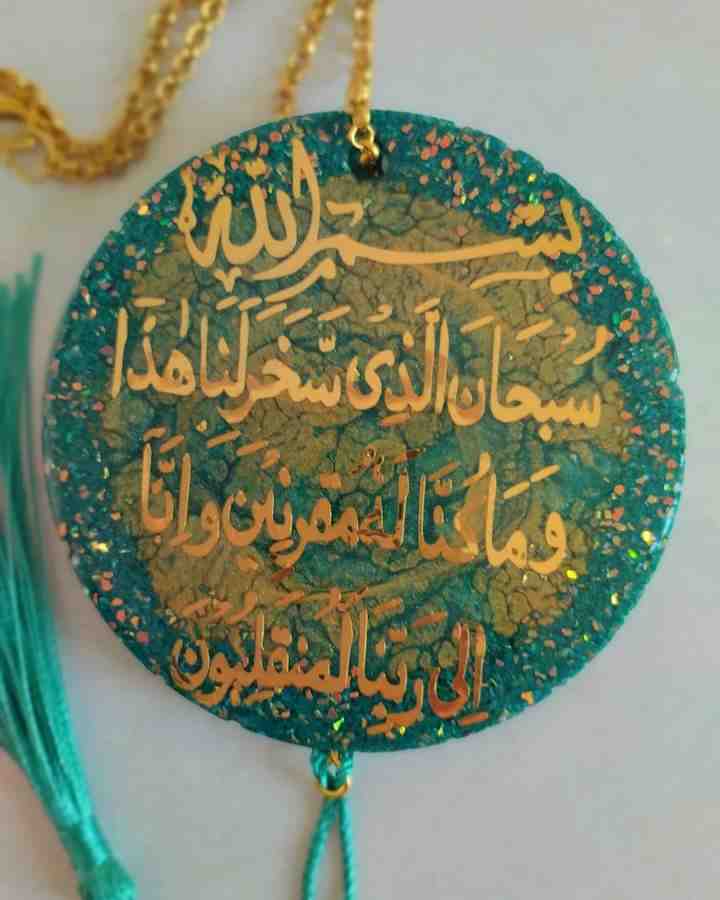 بِسْمِ اللّٰهِ
سُبْحَانَ الَّذِى سَخَّرَ لَنَا هٰذَا
وَمَا كُنَّا لَهُ مُقْرِنِينَ وَاِنَّا
اِلَىٰ رَبِّنَا لَمُنْقَلِبُونَ